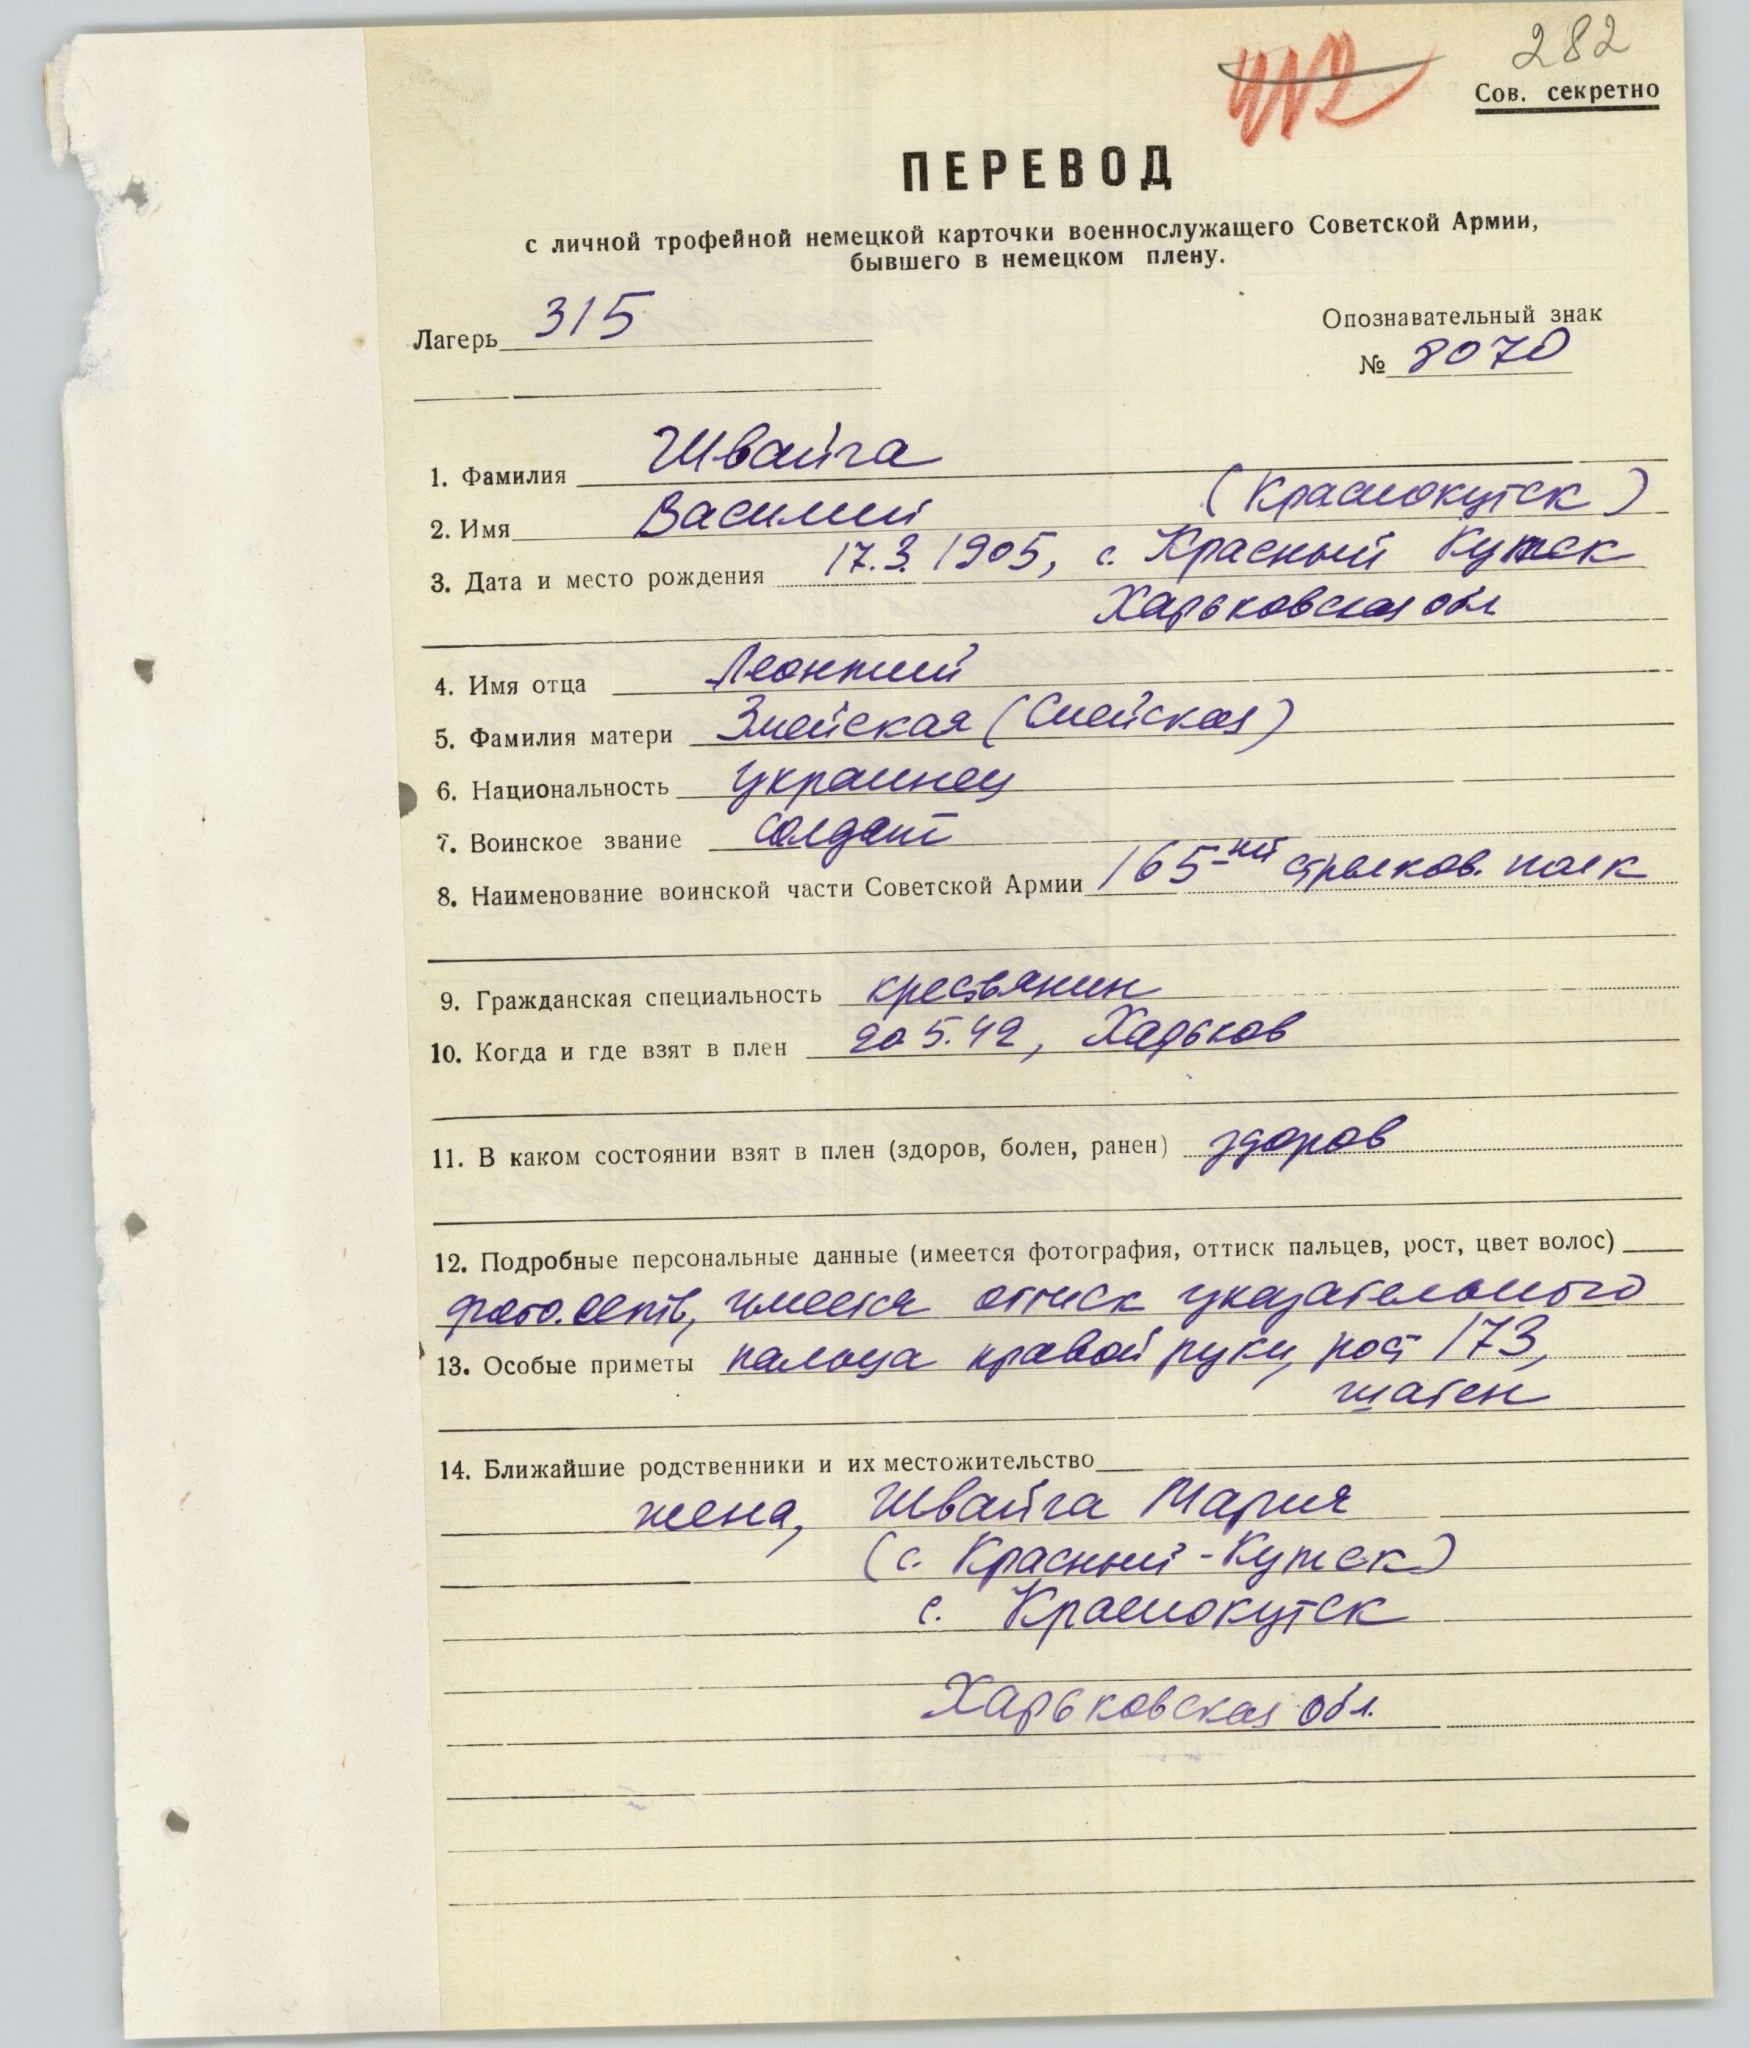 282
Сов. секретно
ПЕРЕВОД
с личной трофейной немецкой карточки военнослужащего Советской Армии,
бывшего в немецком плену.
Лагерь 315
Опознавательный знак
№ 8070
1. Фамилия Швайга
2. Имя Василий (Краснокутск)
3. Дата и место рождения 17.3.1905, с. Красный Кутск
Харьковская обл
4. Имя отца Леонтий
5. Фамилия матери Змейская (Смейская)
6. Национальность украинец
7. Воинское звание солдат
8. Наименование воинской части Советской Армии 165-ый стрелков. полк
9. Гражданская специальность крестьянин
10. Когда и где взят в плен 20 5.42, Харьков
11. В каком состоянии взят в плен (здоров, болен, ранен) здоров
12. Подробные персональные данные (имеется фотография, оттиск пальцев, рост, цвет волос)
фото. есть, имеется оттиск указательного
13. Особые приметы пальца правой руки, рост 173,
шатен
14. Ближайшие родственники и их местожительство
жена, Швайга Мария
(с. Красный-Кутск)
с. Краснокутск
Харьковская обл.